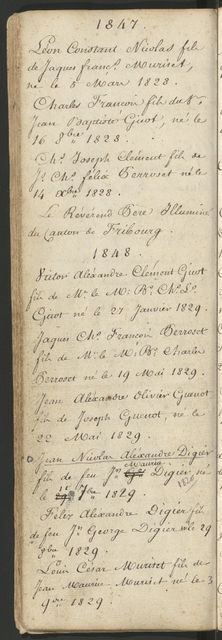 1847.
Léon Constant Nicolas fils
de Jaques Franç.s Muriset,
né le 5 Mars 1828.
Charles François fils du S.r
Jean Baptiste Guot, né le
16 8bre 1828.
Ch.s Joseph Clément fils de
J.s Ch.s félix Perroset né le
14 Xbre 1828.
Le Révérend Père Illuminé
du Canton de Fribourg.
1848.
Victor Alexandre Clément Guot
fils de M.r le M. B.n Ch.s L.s
Guot né le 27 Janvier 1829.
Jaques Ch.s François Perroset
fils de M.r le M. B.n Charles
Perroset né le 19 Mai 1829.
Jean Alexandre Olivier Guenot
fils de Joseph Guenot, né le
22 Mai 1829.
Jean Nicolas Alexandre Digier
Mauris
fils de feu J.n Digier, né
le 7bre 1829
Félix Alexandre Digier fils
de feu J.n George Digier né le 29
8bre 1829.
Louis César Muriset fils de
Jean Maurice Muriset né le 3
9bre 1829.